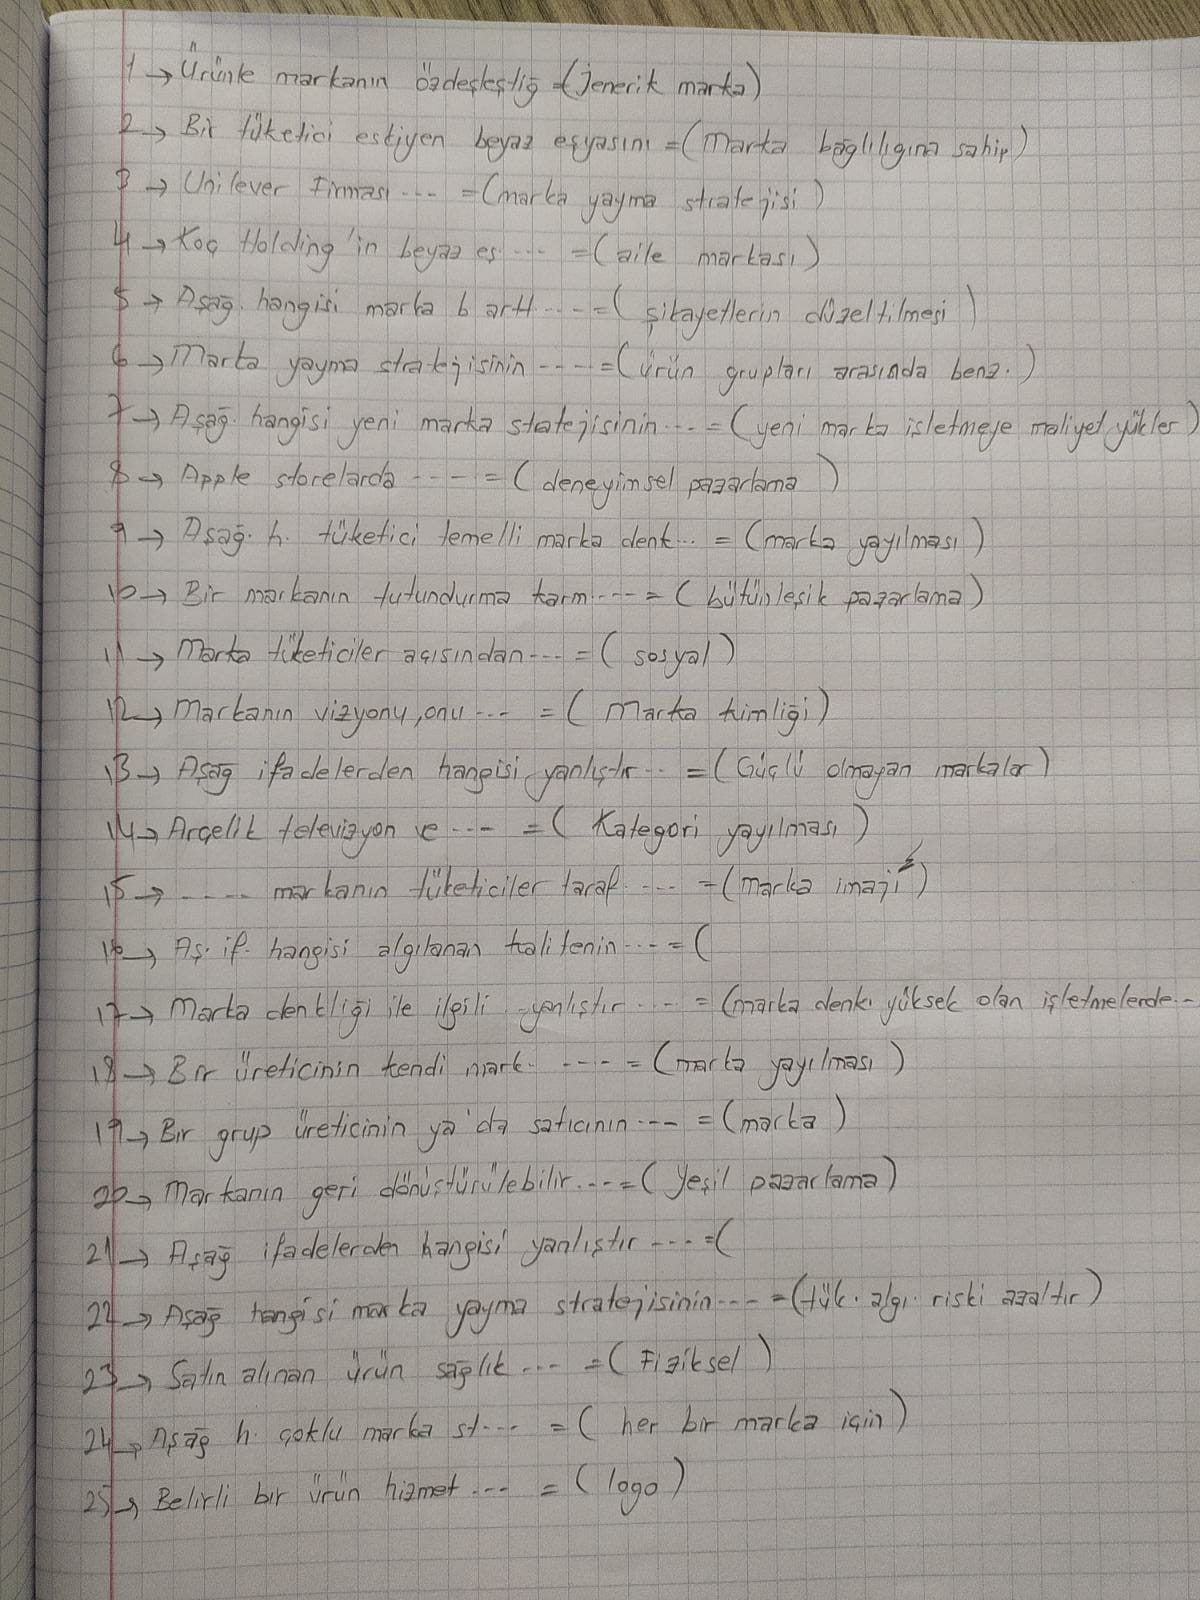 1 → Ürünle markanın özdeşleştiğ = (jenerik marka)
2 → Bir tüketici eskiyen beyaz eşyasını = (Marka bağlılığına sahip)
3 → Unilever Firması --- = (marka yayma stratejisi)
4 → Koç Holding'in beyaz eş --- = (aile markası)
5 → Aşağ. hangisi marka b artt ---- = (şikayetlerin düzeltilmesi)
6 → Marka yayma stratejisinin ---- = (ürün grupları arasında benz.)
7 → Aşağ. hangisi yeni marka statejisinin --- = (yeni marka işletmeye maliyet yükler)
8 → Apple storelarda ---- = (deneyimsel pazarlama)
9 → Aşağ. h. tüketici temelli marka denk... = (marka yayılması)
10 → Bir markanın tutundurma karm ---- = (bütünleşik pazarlama)
11 → Marka tüketiciler açısından --- = (sosyal)
12 → Markanın vizyonu, onu --- = (Marka kimliği)
13 → Aşağ ifadelerden hangisi yanlıştır -- = (Güçlü olmayan markalar)
14 → Arçelik televizyon ve --- = (Kategori yayılması)
15 → ---- markanın tüketiciler taraf. --- = (marka imajı)
16 → Aş. if. hangisi algılanan kalitenin --- = (
17 → Marka denkliği ile ilgili yanlıştır --- = (marka denk. yüksek olan işletmelerde --
18 → Bir üreticinin kendi mark. ---- = (marka yayılması)
19 → Bir grup üreticinin ya'da satıcının --- = (marka)
20 → Markanın geri dönüştürülebilir --- = (Yeşil pazarlama)
21 → Aşağ ifadelerden hangisi yanlıştır ---- = (
22 → Aşağ hangisi marka yayma stratejisinin --- = (tük. algı. riski azaltır)
23 → Satın alınan ürün sağlık --- = (Fiziksel)
24 → Aşağ h. çoklu marka st --- = (her bir marka için)
25 → Belirli bir ürün hizmet --- = (logo)